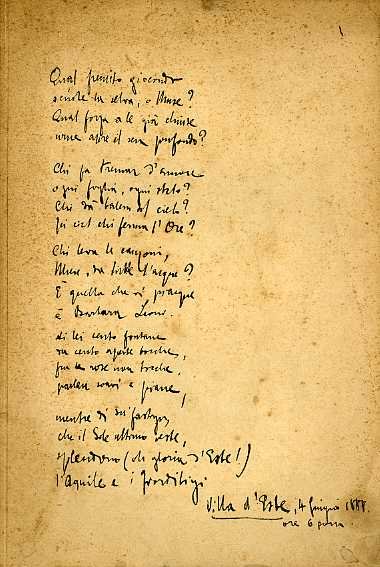 Qual fremito giocondo
scuote la selva, o Muse?
Qual forza a le già chiuse
urne apre il sen profondo?
Chi fa tremar d'amore
ogni foglia, ogni stelo?
Chi dà baleni al cielo?
In ciel chi ferma l'Ore?
Chi leva le canzoni,
Muse, da tutte l'acque?
È quella che vi piacque
è Barbara Leoni.
di lei cento fontane
da cento aperte bocche,
fra le rose non tocche,
parlan soavi e piane,
mentre di su' fastigi,
che il Sole ultimo veste,
splendono (oh gloria d'Este!)
l'Aquile e i Fiordiligi
Villa d'Este, 4 Giugno
ore 6 pom.